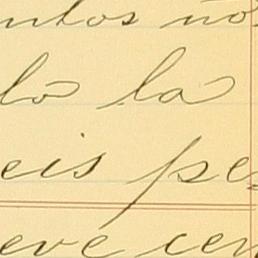 ntos no
ló la
eis pe
eve cen